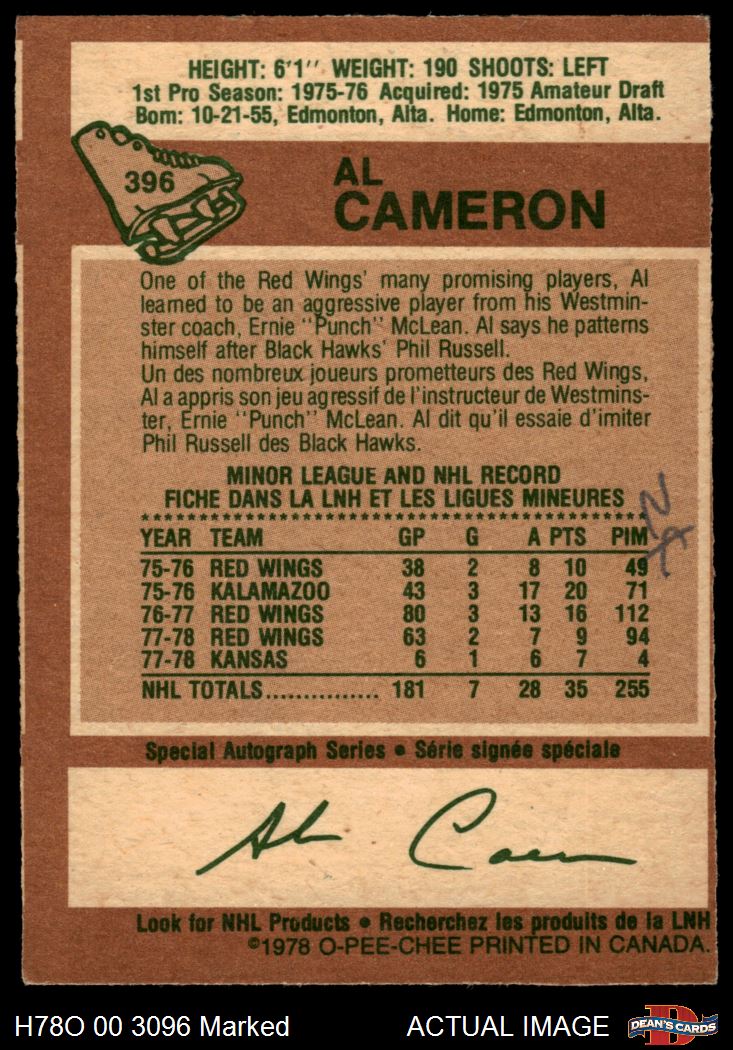 HEIGHT: 6'1'' WEIGHT: 190 SHOOTS: LEFT
1st Pro Season: 1975-76 Acquired: 1975 Amateur Draft
Born: 10-21-55, Edmonton, Alta. Home: Edmonton, Alta.
396
AL
CAMERON
One of the Red Wings' many promising players, Al
learned to be an aggressive player from his Westmin-
ster coach, Ernie ''Punch'' McLean. Al says he patterns
himself after Black Hawks' Phil Russell.
Un des nombreux joueurs prometteurs des Red Wings,
Al a appris son jeu agressif de l'instructeur de Westmins-
ter, Ernie ''Punch'' McLean. Al dit qu'il essaie d'imiter
Phil Russell des Black Hawks.
MINOR LEAGUE AND NHL RECORD
FICHE DANS LA LNH ET LES LIGUES MINEURES
YEAR TEAM GP G A PTS PIM
75-76 RED WINGS 38 2 8 10 49
75-76 KALAMAZOO 43 3 17 20 71
76-77 RED WINGS 80 3 13 16 112
77-78 RED WINGS 63 2 7 9 94
77-78 KANSAS 6 1 6 7 4
NHL TOTALS............... 181 7 28 35 255
Special Autograph Series • Série signée spéciale
Al Cameron
Look for NHL Products • Recherchez les produits de la LNH
©1978 O-PEE-CHEE PRINTED IN CANADA.
H78O 00 3096 Marked ACTUAL IMAGE DEAN'S CARDS